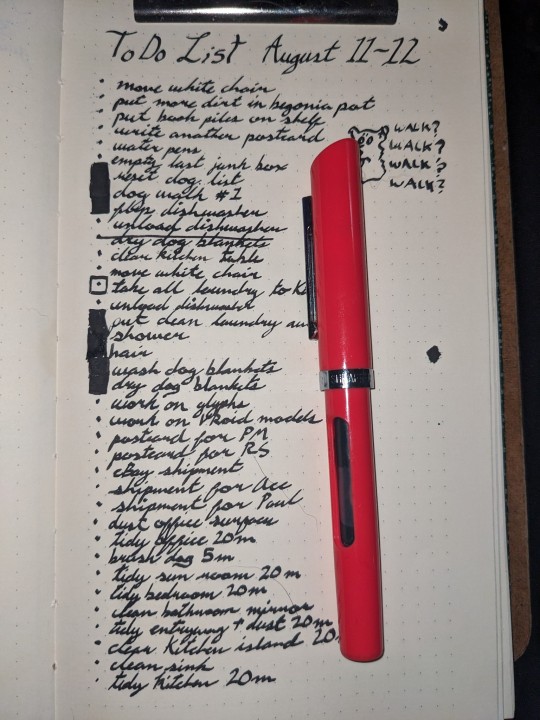 ToDo List August 11-12
move white chair
put more dirt in begonia pot
put book piles on shelf
write another postcard
water pens
empty last junk box
reset dog list
dog walk #1
prep dishwasher
unload dishwasher
dry dog blankets
clear kitchen table
move white chair
take all laundry to
unload dishwasher
put clean laundry
shower
hair
wash dog blankets
dry dog blankets
work on glyphs
work on VRoid models
postcard for PM
postcard for RS
eBay shipment
shipment for Ace
shipment for Paul
dust office surface
tidy office 20m
brush dog 5m
tidy sun room 20m
tidy bedroom 20m
clean bathroom mirror
tidy entryway + dust 20m
clear kitchen island 20
clean sink
tidy kitchen 20m
WALK?
WALK?
WALK?
WALK?